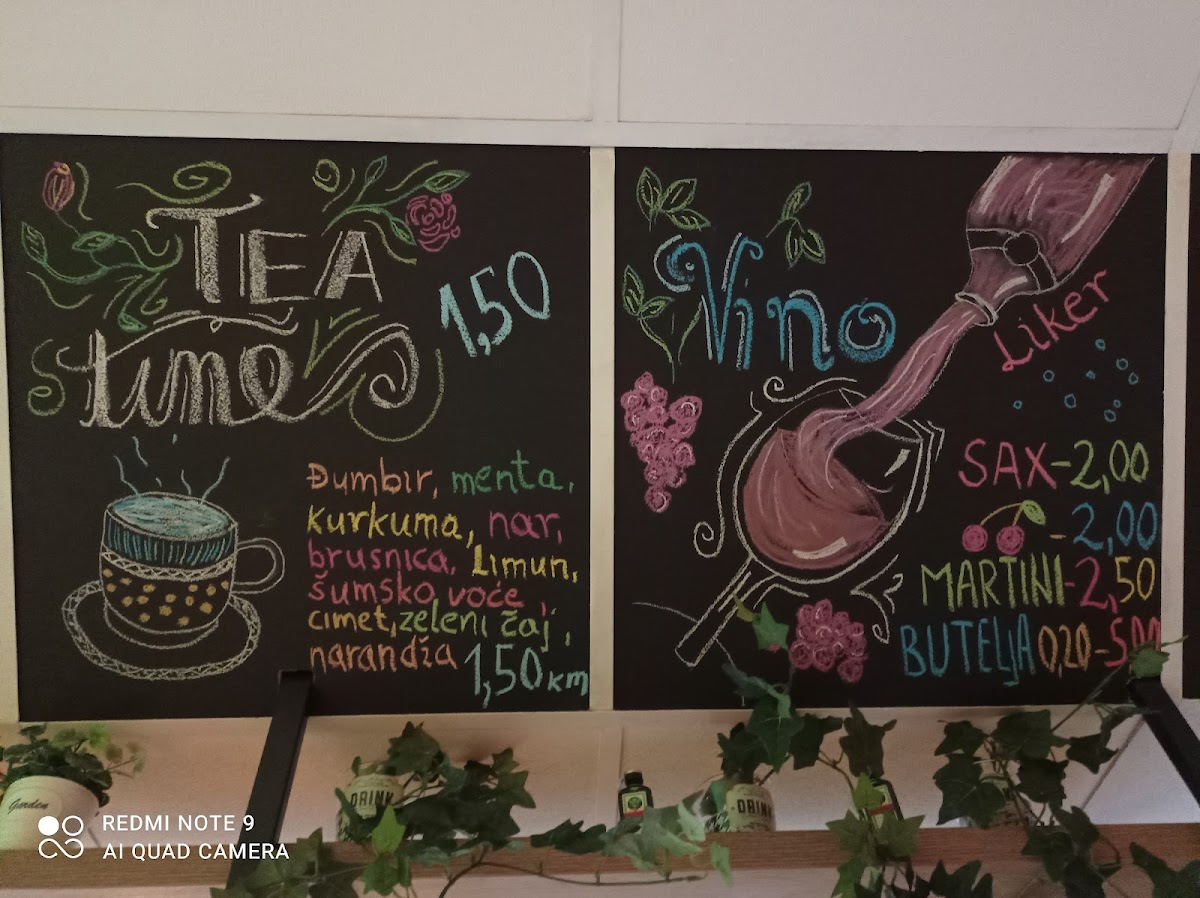 TEA
time
1,50
Đumbir, menta,
Kurkuma, nar,
brusnica, Limun,
šumsko voće,
cimet, zeleni čaj,
narandža 1,50 KM
Vino
Liker
SAX-2,00
-2,00
MARTINI-2,50
BUTELJA 0,20-5
Garden
DRINK
DRINK
REDMI NOTE 9
AI QUAD CAMERA